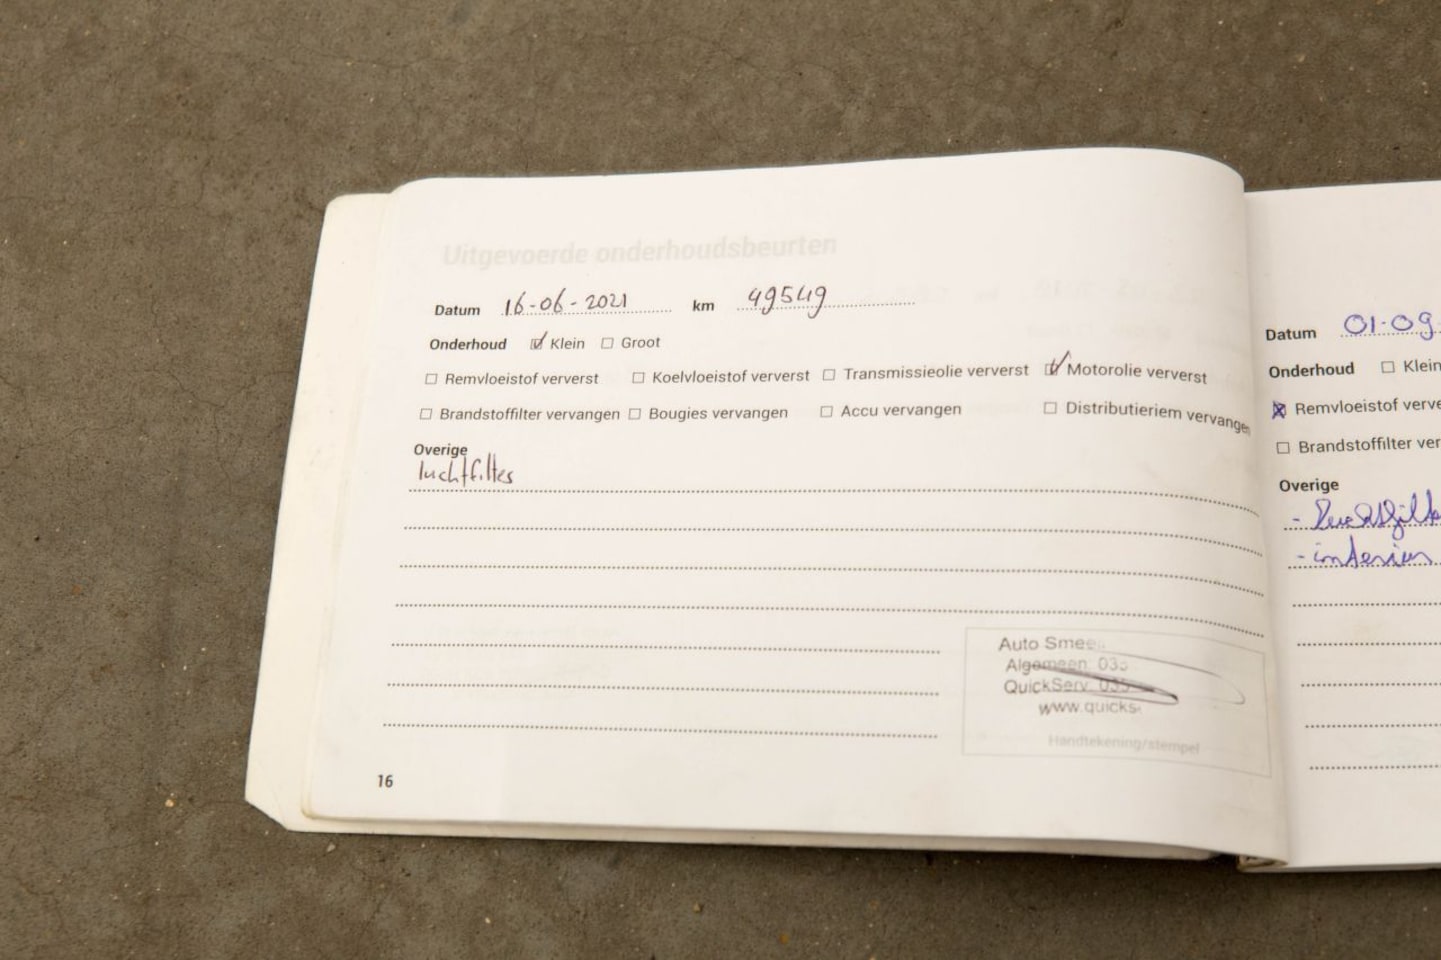 Uitgevoerde onderhoudsbeurten
Datum 16-06-2021 km 49549
Onderhoud Klein Groot
Remvloeistof ververst Koelvloeistof ververst Transmissieolie ververst Motorolie ververst
Brandstoffilter vervangen Bougies vervangen Accu vervangen Distributieriem vervangen
Overige
luchtfilter
Auto Smee
Algemeen: 035
QuickServ. 035
www.quicks
Handtekening/stempel
16
Datum 01-09
Onderhoud Klein
Remvloeistof verve
Brandstoffilter ver
Overige
- interieur